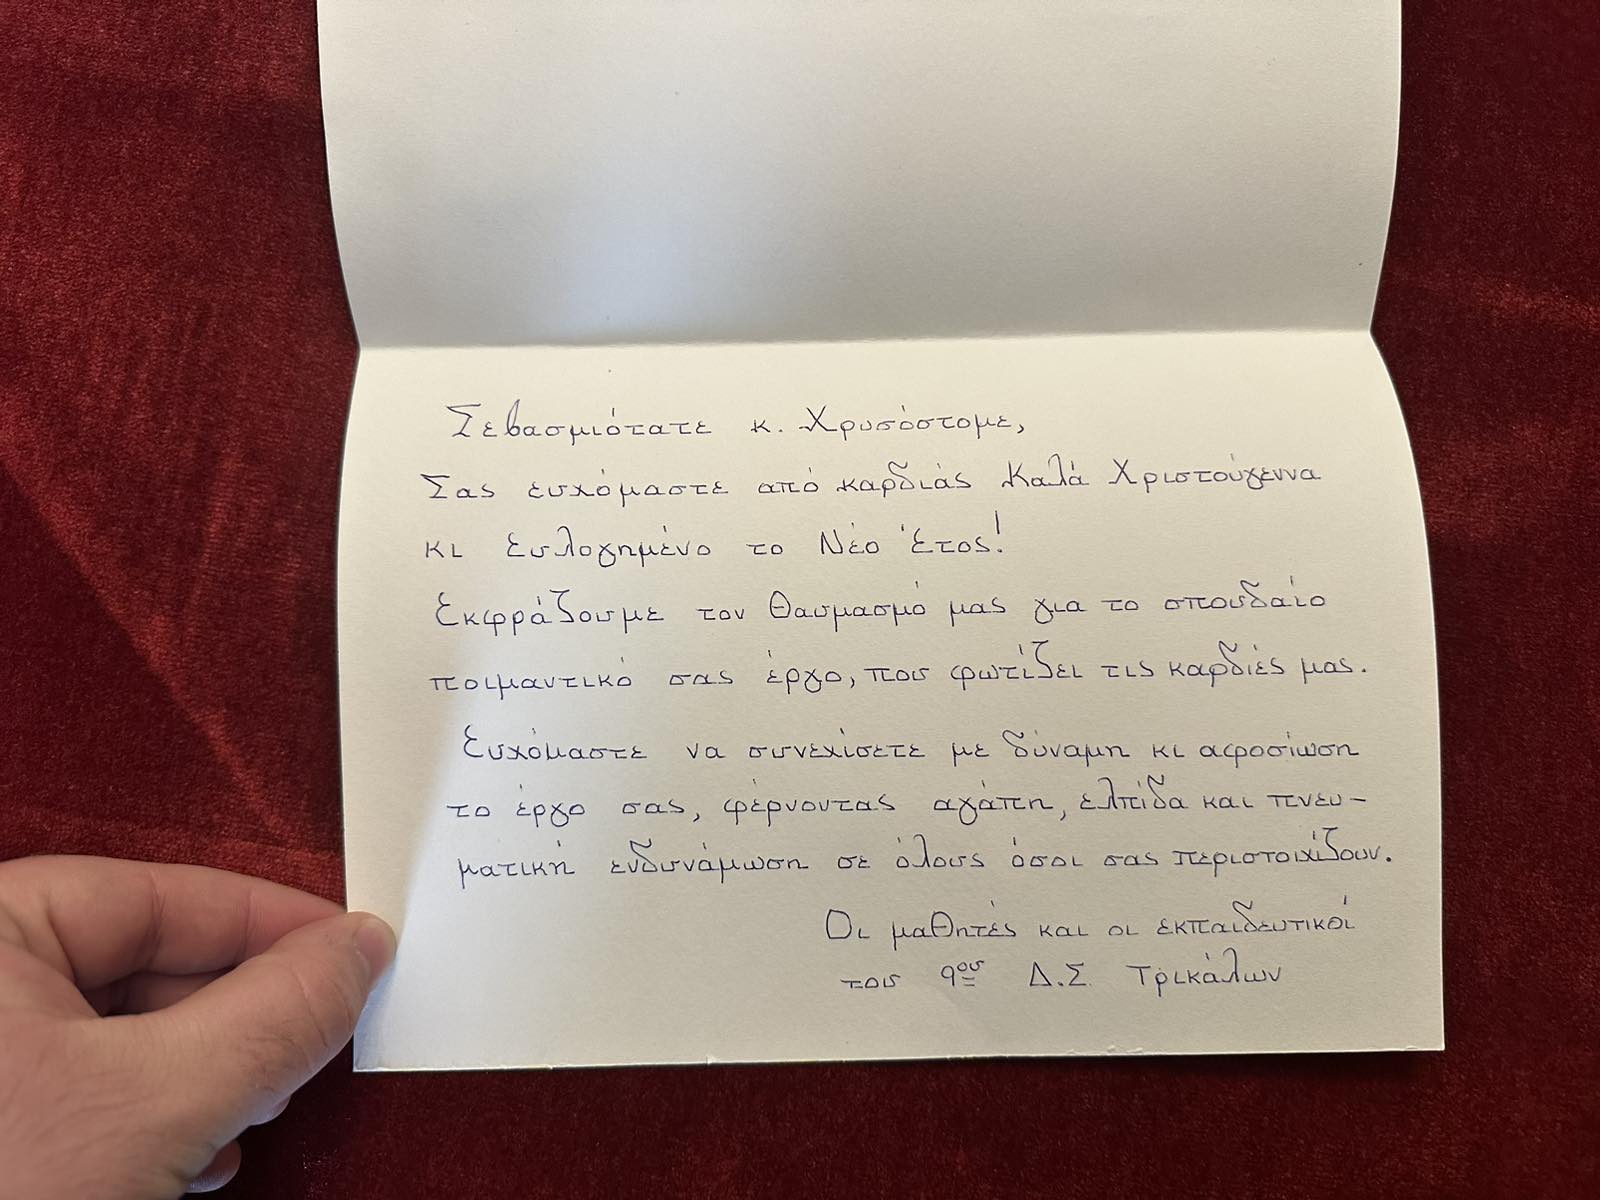 Σεβασμιότατε κ. Χρυσόστομε,
Σας ευχόμαστε από καρδιάς Καλά Χριστούγεννα
κι Ευλογημένο το Νέο Έτος!
Εκφράζουμε τον θαυμασμό μας για το σπουδαίο
ποιμαντικό σας έργο, που φωτίζει τις καρδιές μας.
Ευχόμαστε να συνεχίσετε με δύναμη κι αφοσίωση
το έργο σας, φέρνοντας αγάπη, ελπίδα και πνευ-
ματική ενδυνάμωση σε όλους όσοι σας περιστοιχίζουν.
Οι μαθητές και οι εκπαιδευτικοί
του 9ου Δ.Σ. Τρικάλων